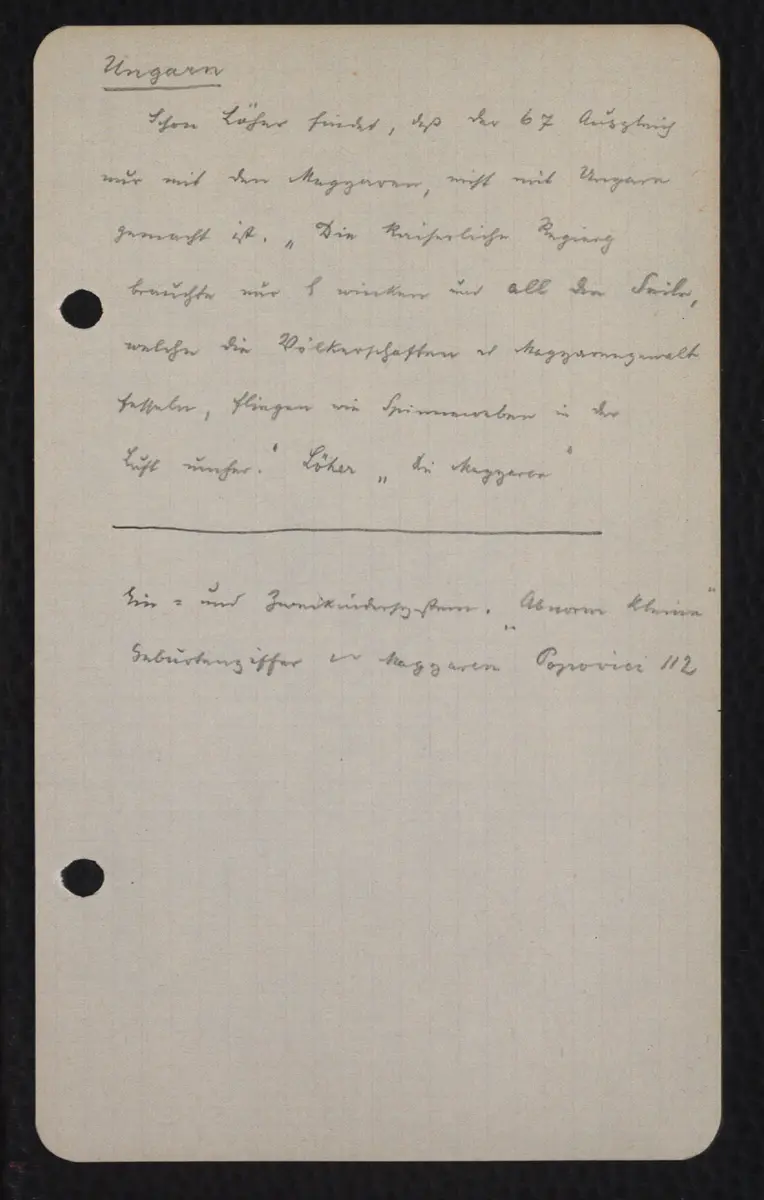 Ungarn
Schon Löher findet, daß der 67 Ausgleich
nur mit den Magyaren, nicht mit Ungarn
gemacht ist. „Die kaiserliche Regierg
brauchte nur z winken und all die Seile,
welche die Völkerschaften d Magyarengewalt
fesseln, fliegen wie Spinneweben in der
Luft umher." Löher „Die Magyaren"
Ein- und Zweikindersystem. „Abnorm kleine"
Geburtenziffer Magyaren Popovici 112